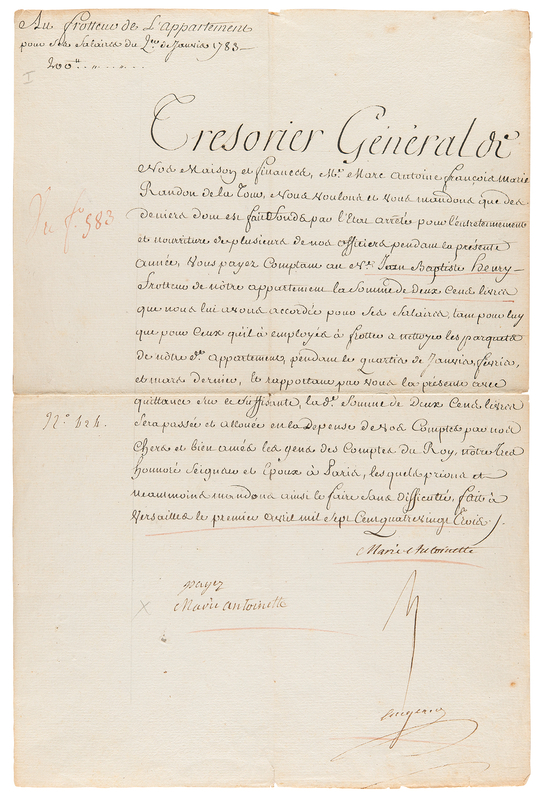 Au frotteur de L'appartement
pour ses Salaires du Qer de Janvier 1783
200lt
I
Tresorier Général de
Nos Maison et finances, Mr. Marc Antoine françois Marie
Randon de la Tour, Nous Voulons et vous mandons que des
deniers dont est fait fonds par l'Etat arrêté pour l'entretennement
et nourriture de plusieurs de nos officiers pendant la présente
année, Vous payez Comptant au Né. Jean Baptiste henry
frotteur de nôtre appartement la Somme de Deux Cens livres
que nous lui avons accordée pour Ses Salaires, tant pour luy
que pour Ceux qu'il a employés à frotter et nettoyer les parquets
de nôtre dt. appartement, pendant le quartier de Janvier, fevrier,
et mars dernier, Et rapportant par Vous la présente avec
quittance Sur ce Suffisante, la de. Somme de Deux Cens livres
Sera passée et allouée en la depense de Vos Comptes par nos
Chers et bien amés les gens des Comptes du Roy, nôtre très
honnoré Seigneur et Epoux à Paris, les quels prions et
neanmoins mandons ainsi le faire Sans difficulté, fait à
Versailles le premier avril mil Sept Cent quatre vingt Trois ./.
Vu fo. 583
No. 624.
Marie Antoinette
payez
Marie antoinette
X